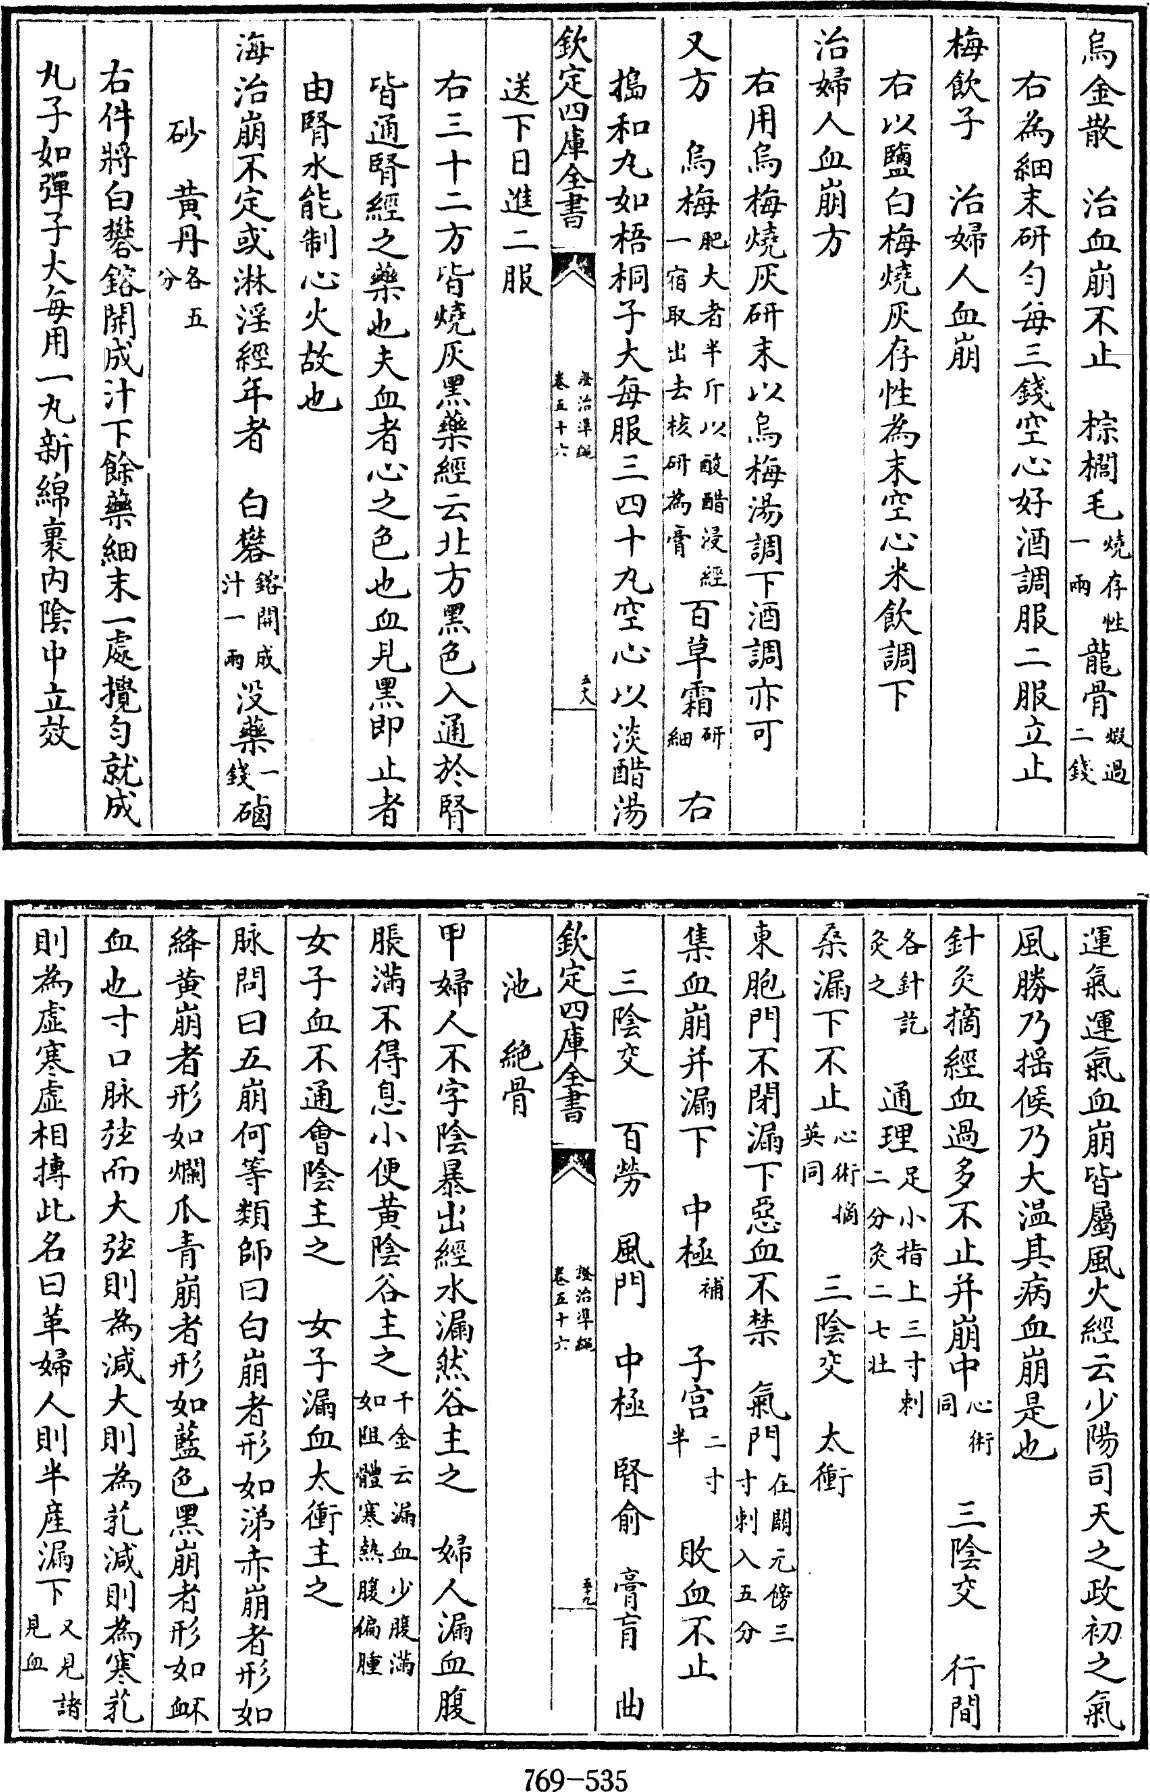 烏金散　治血崩不止　棕櫚毛燒存性一兩龍骨煅過二錢
右為細末研勻每三錢空心好酒調服二服立止
梅飲子　治婦人血崩
右以鹽白梅燒灰存性為末空心米飲調下
治婦人血崩方
右用烏梅燒灰研末以烏梅湯調下酒調亦可
又方　烏梅肥大者半斤以酸醋浸經一宿取出去核研為膏百草霜研細　右
搗和丸如梧桐子大每服三四十丸空心以淡醋湯
欽定四庫全書　證治準繩卷五十六　五大
送下日進二服
右三十二方皆燒灰黑藥經云北方黑色入通於腎
皆通腎經之藥也夫血者心之色也血見黑即止者
由腎水能制心火故也
海治崩不定或淋淫經年者　白礬鎔開成汁一兩没藥一錢硇
砂　黄丹各五分
右件將白礬鎔開成汁下餘藥細末一處攪勻就成
丸子如彈子大每用一丸新綿裹内陰中立效
運氣運氣血崩皆屬風火經云少陽司天之政初之氣
風勝乃揺候乃大温其病血崩是也
針灸摘經血過多不止并崩中心術同　三陰交　行間
各針訖灸之　通理足小指上三寸刺二分灸二七壯
桑漏下不止心術摘英同　三陰交　太衝
東胞門不閉漏下惡血不禁　氣門在關元傍三寸刺入五分
集血崩并漏下　中極補　子宫二寸半　敗血不止
三陰交　百勞　風門　中極　腎俞　膏肓　曲
欽定四庫全書　證治準繩卷五十六　五十九
池　絶骨
甲婦人不字陰暴出經水漏然谷主之　婦人漏血腹
脹滿不得息小便黄陰谷主之千金云漏血少腹滿如阻體寒熱腹偏腫
女子血不通會陰主之　女子漏血太衝主之
脉問曰五崩何等類師曰白崩者形如涕赤崩者形如
絳黄崩者形如爛瓜青崩者形如藍色黑崩者形如衃
血也寸口脉弦而大弦則為減大則為芤減則為寒芤
則為虚寒虚相摶此名曰革婦人則半産漏下又見諸見血
769-535